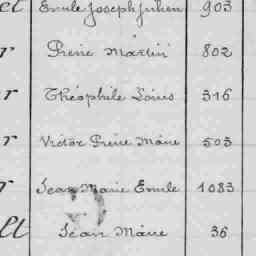 et Emile Joseph Julien 903
r Pierre Martin 802
r Théophile Louis 316
r Victor Pierre Marie 503
r Jean Marie Emile 1083
lt Jean Marie 36